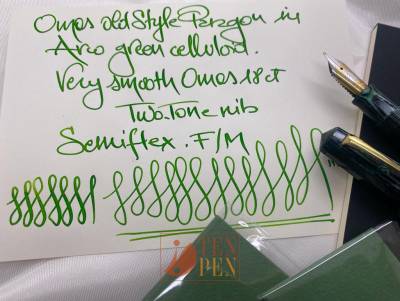 Omas old Style Paragon in
Arco green celluloid.
Very smooth Omas 18 ct
Two-Tone nib
Semiflex. F/M
TEN
PEN